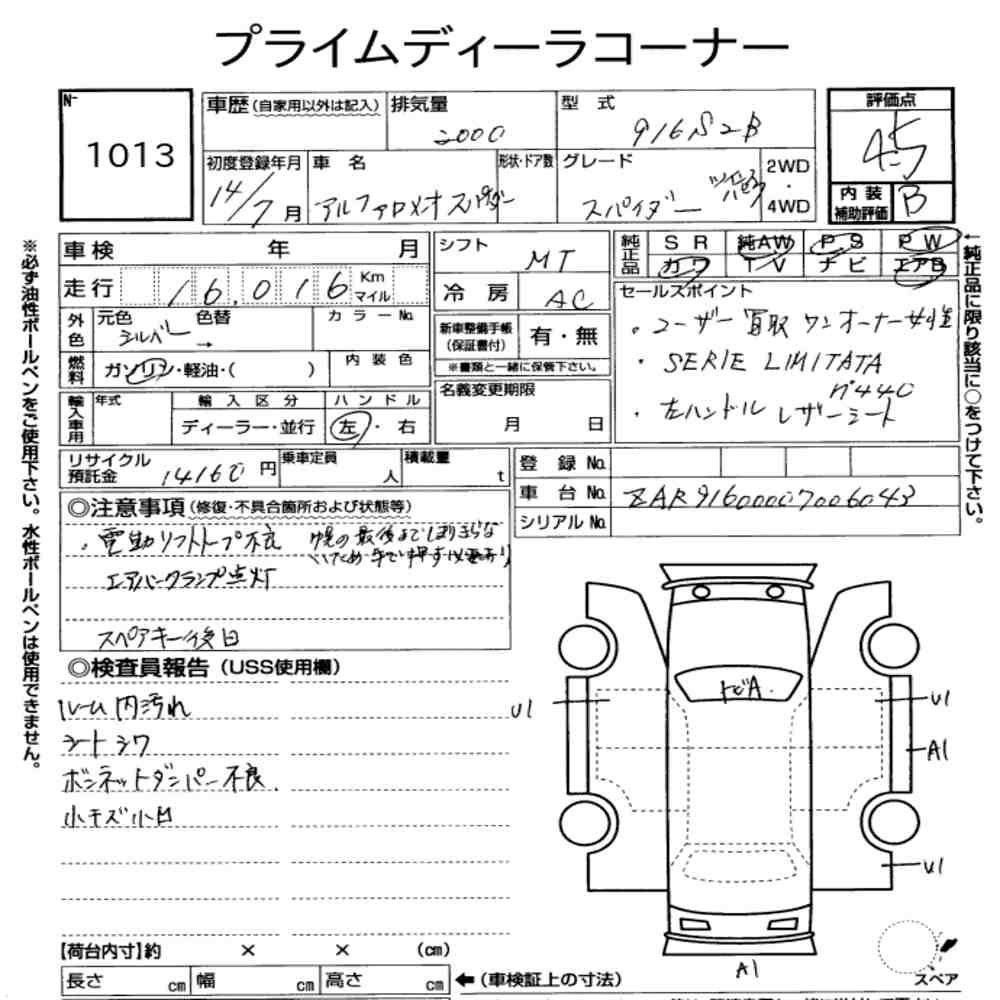 プライムディーラコーナー
No
1013
車歴(自家用以外は記入)
排気量
2000
型式
916S2B
評価点
4.5
初度登録年月
14/7月
車名
アルファロメオ スパイダー
形状・ドア数
グレード
スパイダー
2WD
・
4WD
内装
補助評価
B
車検 年 月
シフト
MT
純正品
SR 純AW PS PW
カワ TV ナビ エアB
走行 16,016 Km マイル
冷房
AC
セールスポイント
・ユーザー買取 ワンオーナー女性
・SERIE LIMITATA
nº440
・左ハンドル レザーシート
外色
元色 色替
シルバー →
カラーNo.
新車整備手帳
(保証書付)
有・無
※書類と一緒に保管下さい。
燃料
ガソリン・軽油・( )
内装色
名義変更期限
月 日
輸入車用
年式
輸入区分
ディーラー・並行
ハンドル
左・右
リサイクル
預託金 14160円
乗車定員
人
積載量
t
登録No.
車台No. ZAR91600007006043
シリアルNo.
◎注意事項(修復・不具合箇所および状態等)
・電動ソフトトップ不良 幌の最後までしまりきらな
いため手で押す必要あり
エアバークランプ点灯
スペアキー後日
◎検査員報告(USS使用欄)
ルーム内汚れ
シートシワ
ボンネットダンパー不良.
小キズ小凹
トビA.
U1
U1
A1
U1
A1
【荷台内寸】約 × × (cm)
長さ cm 幅 cm 高さ cm
←(車検証上の寸法)
スペア
※必ず油性ボールペンをご使用下さい。水性ボールペンは使用できません。
←純正品に限り該当に○をつけて下さい。